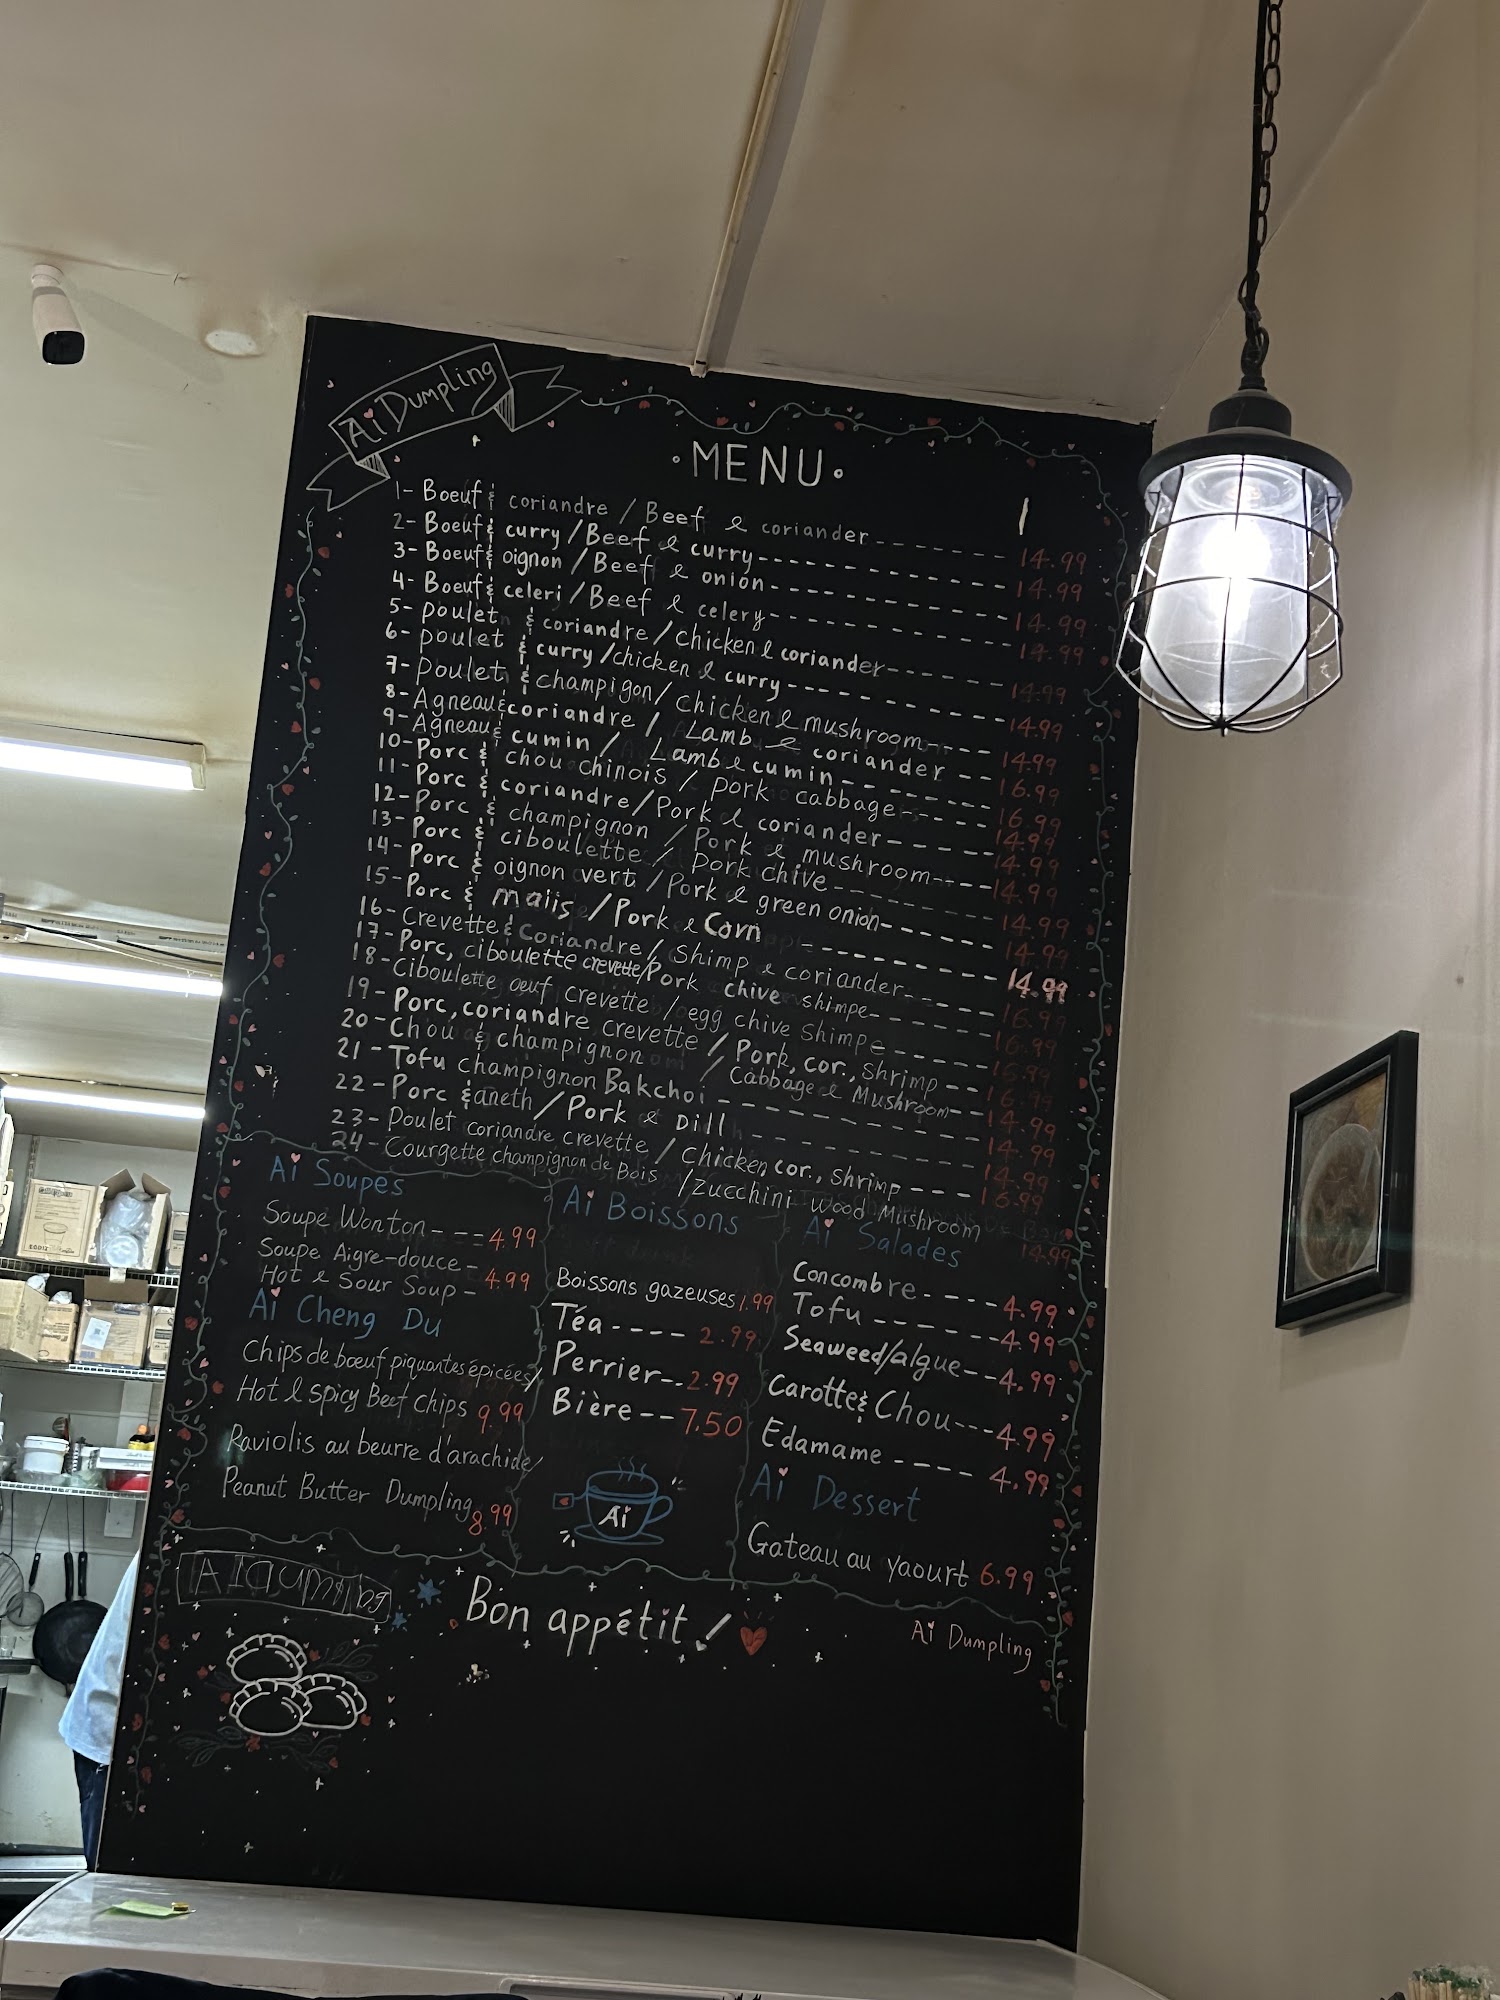 Ai Dumpling
• MENU •
1- Boeuf & coriandre / Beef & coriander ------- 14.99
2- Boeuf & curry / Beef & curry ------------- 14.99
3- Boeuf & oignon / Beef & onion ------------ 14.99
4- Boeuf & celeri / Beef & celery ----------- 14.99
5- poulet & coriandre / chicken & coriander ------ 14.99
6- poulet & curry / chicken & curry --------- 14.99
7- poulet & champigon / chicken & mushroom ---- 14.99
8- Agneau & coriandre / Lamb & coriander -- 16.99
9- Agneau & cumin / Lamb & cumin - ------ 16.99
10- Porc & chou chinois / pork cabbage ---- 14.99
11- Porc & coriandre / Pork & coriander ----- 14.99
12- Porc & champignon / Pork & mushroom ---- 14.99
13- Porc & ciboulette / Pork chive -------- 14.99
14- Porc & oignon vert / Pork & green onion ------ 14.99
15- Porc & maiis / Pork & Corn --------- 14.99
16- Crevette & Coriandre / Shimp & coriander ---- 16.99
17- Porc, ciboulette crevette / Pork chive shimpe ------ 16.99
18- Ciboulette oeuf crevette / egg chive Shimpe ----- 16.99
19- Porc, coriandre crevette / Pork, cor., Shrimp -- 16.99
20- Chou & champignon / Cabbage & Mushroom -- 14.99
21- Tofu champignon Bakchoi ----------- 14.99
22- Porc & aneth / Pork & Dill ---------- 14.99
23- Poulet coriandre crevette / Chicken, cor., Shrimp --- 16.99
24- Courgette champignon de Bois / Zucchini wood Mushroom 14.99
Ai Soupes
Soupe Wonton ---- 4.99
Soupe Aigre-douce -
Hot & Sour Soup - 4.99
Ai Cheng Du
Chips de bœuf piquantes épicées /
Hot & Spicy Beef Chips 9.99
Raviolis au beurre d'arachide /
Peanut Butter Dumpling 8.99
Ai Boissons
Boissons gazeuses 1.99
Téa ---- 2.99
Perrier --. 2.99
Bière -- 7.50
Ai
Ai Salades
Concombre ---- 4.99
Tofu ------- 4.99
Seaweed/algue --- 4.99
Carotte & Chou --- 4.99
Edamame ---- 4.99
Ai Dessert
Gateau au yaourt 6.99
AIdumpling
Bon appétit !
Ai Dumpling